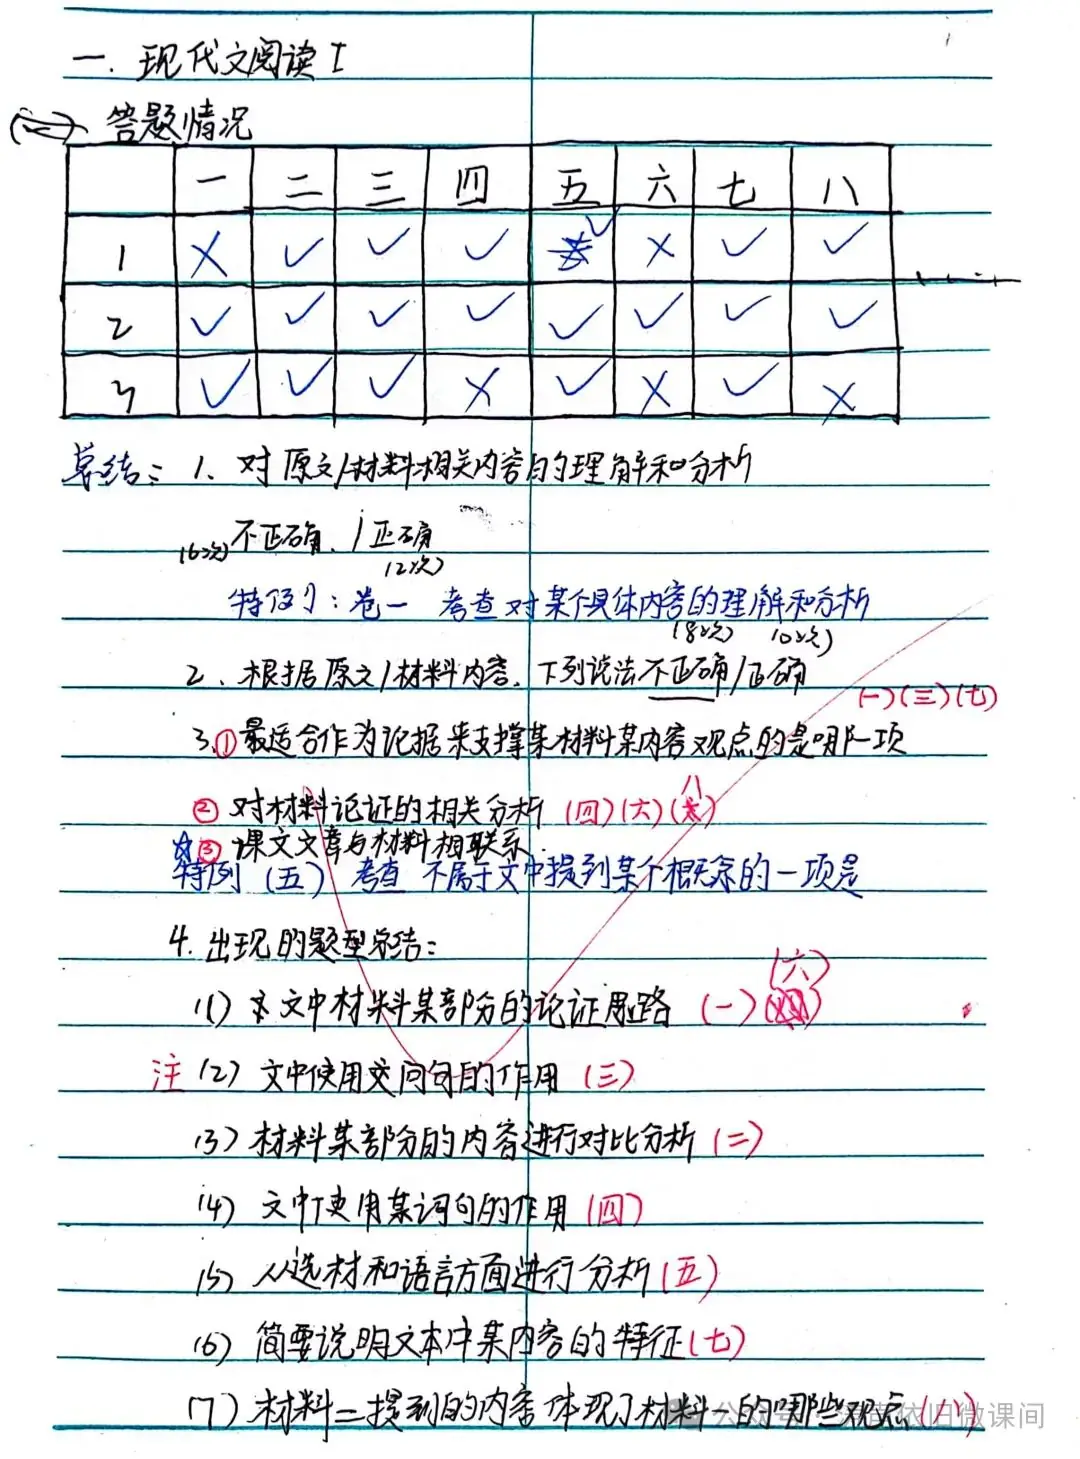 一. 现代文阅读I
答题情况
一 二 三 四 五 六 七 八
1 × ✓ ✓ ✓ ✓ × ✓ ✓
2 ✓ ✓ ✓ ✓ ✓ ✓ ✓ ✓
3 ✓ ✓ ✓ × ✓ × ✓ ×
总结: 1、对原文/材料相关内容的理解和分析
不正确、/正确
(6次) (2次)
特例: 卷一 考查对某个具体内容的理解和分析
(8次) (0次)
2、根据原文/材料内容, 下列说法不正确/正确
(一)(三)(七)
3.①最适合作为论据来支撑某材料某内容观点的是哪一项
②对材料论证的相关分析 (四)(六)(八)
☆③课文文章与材料相联系.
特例 (五) 考查 不属于文中提到某个概念的一项是
4. 出现的题型总结:
(六)
(1) 文中材料某部分的论证思路 (一)
注 (2) 文中使用设问句的作用 (三)
(3) 材料某部分的内容进行对比分析 (二)
(4) 文中使用某词句的作用 (四)
(5) 从选材和语言方面进行分析 (五)
(6) 简要说明文本中某内容的特征 (七)
(7) 材料二提到的内容体现了材料一的哪些观点 (八)
公众号 依旧微课间